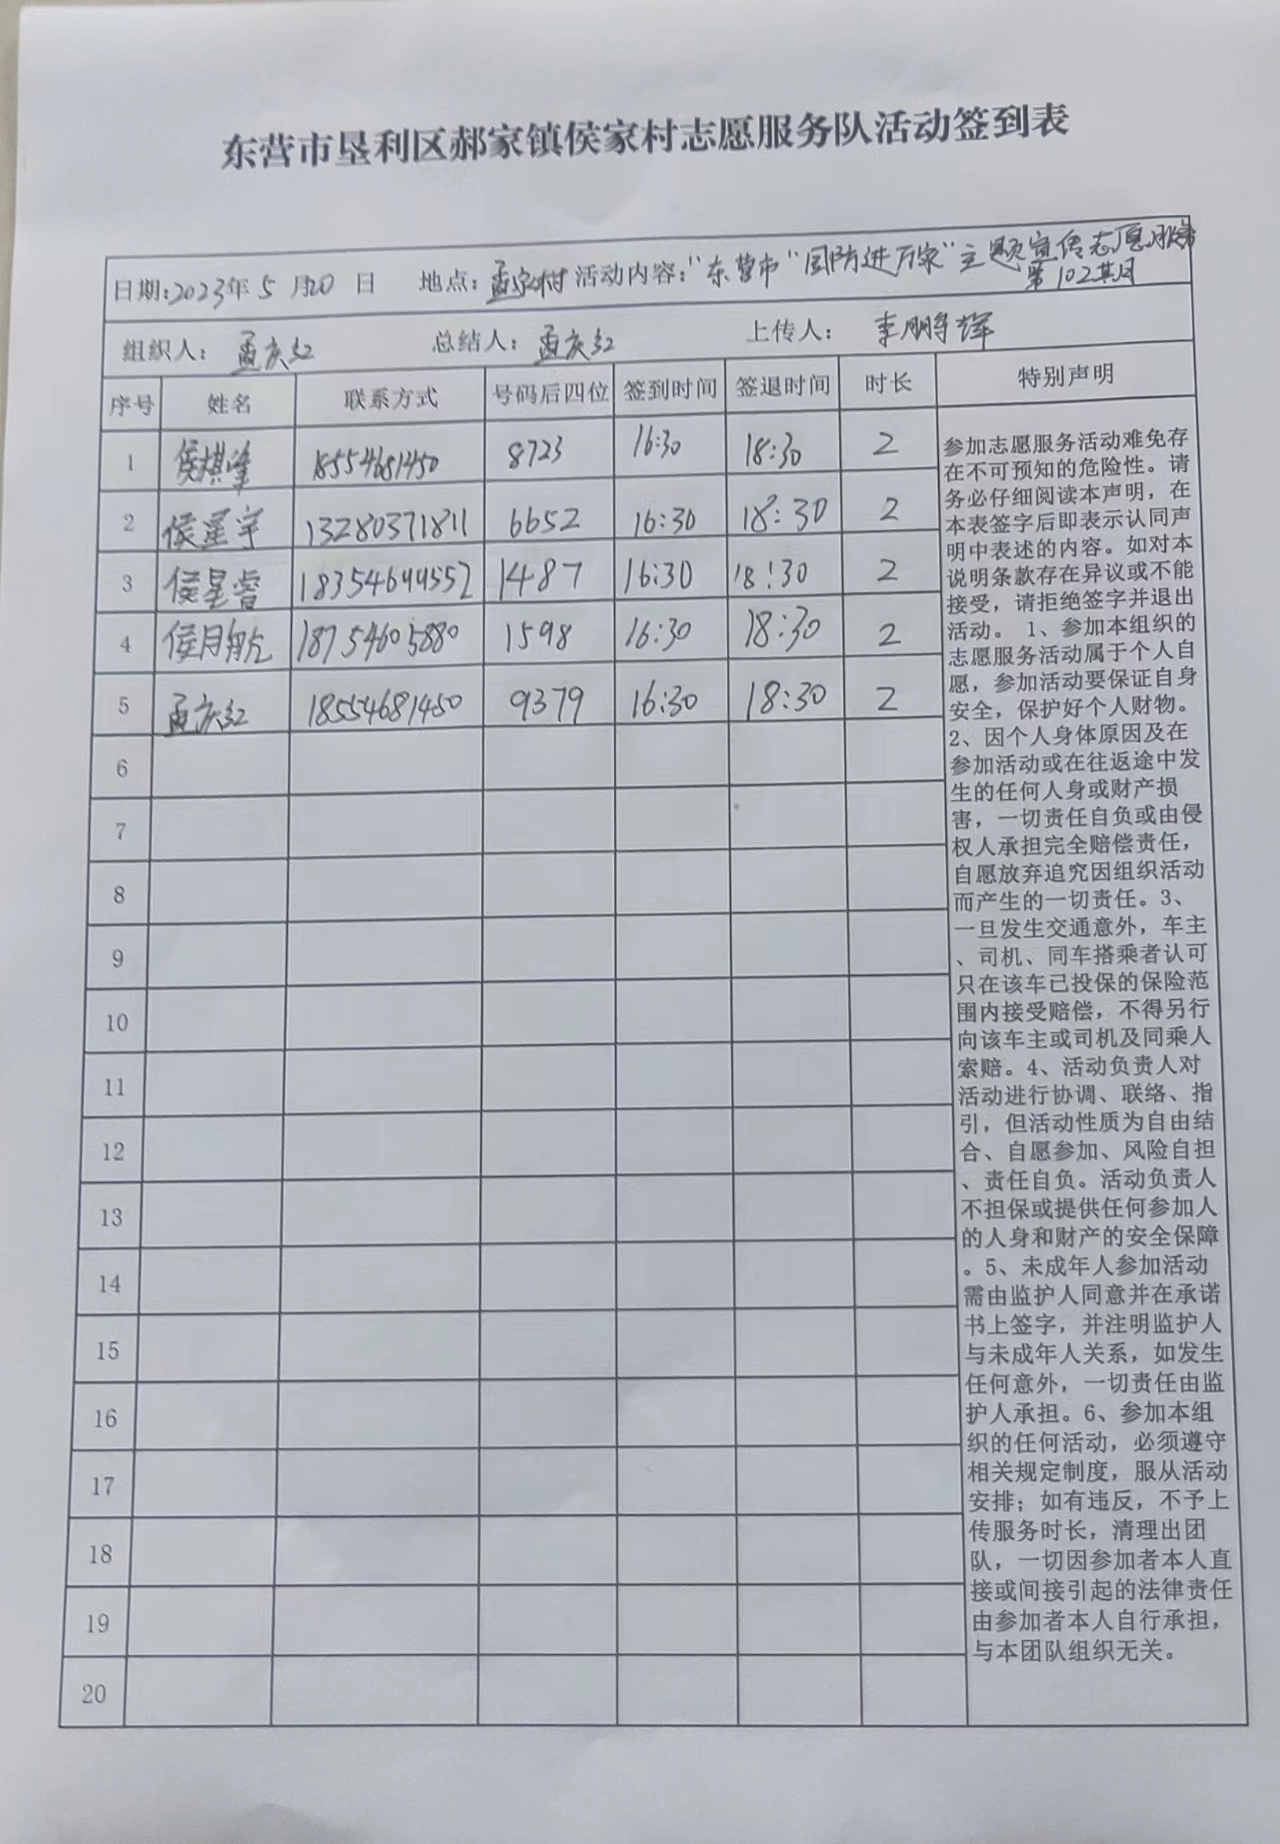 东营市垦利区郝家镇侯家村志愿服务队活动签到表
日期:2023年5月20日 地点:孟家村 活动内容:"东营市"国防进万家"主题宣传志愿服务
第102期
组织人: 孟庆红 总结人: 孟庆红 上传人: 李鹏辉
序号 姓名 联系方式 号码后四位 签到时间 签退时间 时长 特别声明
1 侯棋峰 18554681450 8723 16:30 18:30 2
2 侯星宇 13280371811 6652 16:30 18:30 2
3 侯星睿 18354699552 1487 16:30 18:30 2
4 侯月航 18754605880 1598 16:30 18:30 2
5 孟庆红 18554681450 9379 16:30 18:30 2
6
7
8
9
10
11
12
13
14
15
16
17
18
19
20
参加志愿服务活动难免存
在不可预知的危险性。请
务必仔细阅读本声明，在
本表签字后即表示认同声
明中表述的内容。如对本
说明条款存在异议或不能
接受，请拒绝签字并退出
活动。 1、参加本组织的
志愿服务活动属于个人自
愿，参加活动要保证自身
安全，保护好个人财物。
2、因个人身体原因及在
参加活动或在往返途中发
生的任何人身或财产损
害，一切责任自负或由侵
权人承担完全赔偿责任，
自愿放弃追究因组织活动
而产生的一切责任。3、
一旦发生交通意外，车主
、司机、同车搭乘者认可
只在该车已投保的保险范
围内接受赔偿，不得另行
向该车主或司机及同乘人
索赔。4、活动负责人对
活动进行协调、联络、指
引，但活动性质为自由结
合、自愿参加、风险自担
、责任自负。活动负责人
不担保或提供任何参加人
的人身和财产的安全保障
。5、未成年人参加活动
需由监护人同意并在承诺
书上签字，并注明监护人
与未成年人关系，如发生
任何意外，一切责任由监
护人承担。6、参加本组
织的任何活动，必须遵守
相关规定制度，服从活动
安排；如有违反，不予上
传服务时长，清理出团
队，一切因参加者本人直
接或间接引起的法律责任
由参加者本人自行承担，
与本团队组织无关。